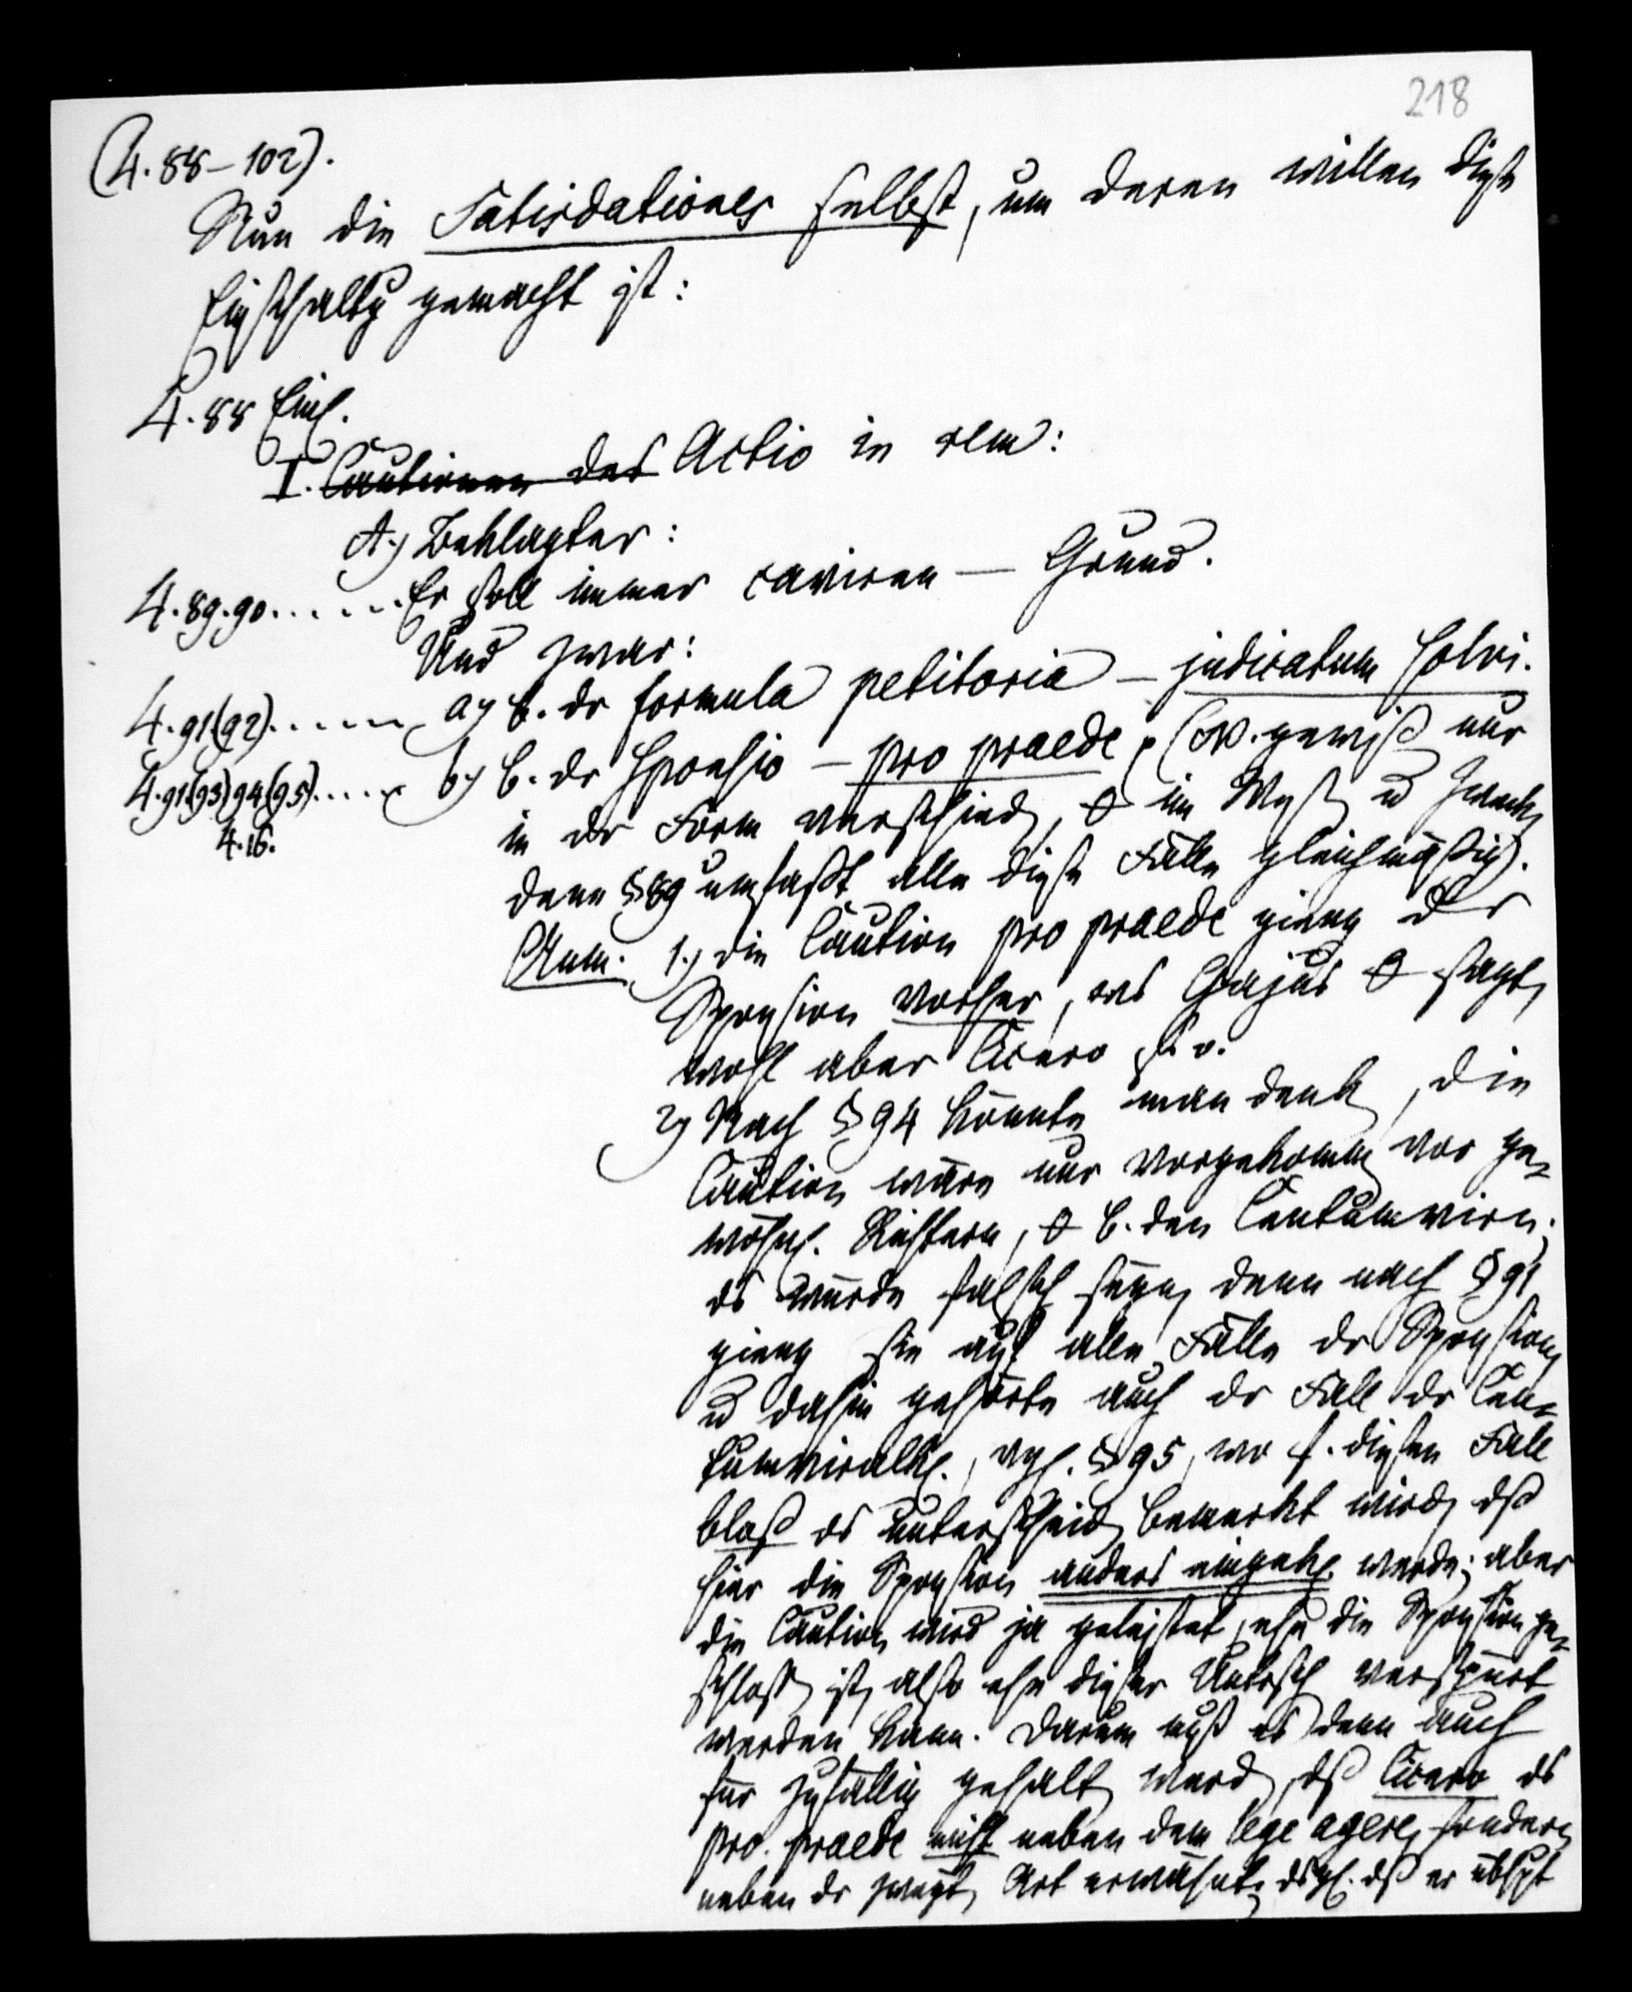 218
(4. 88–102).
Nun die Satisdationes selbst, um deren willen diese
Einschaltg gemacht ist:
4. 88 Einl.
I. Cautionen der Actio in rem:
A.) Beklagter:
4. 89. 90. . . . . . . Er soll immer caviren — Grund.
Und zwar:
4. 91.(92). . . . . . a) b. dr formula petitoria — judicatum solvi.
4. 91(93) 94.(95). . . . . b) b. dr Sponsio — pro praede, (NB. gewiß nur
4. 16.
in dr Form verschied, im Wes u Zweck,
denn § 89 umfaßt alle diese Fälle gleichmäßig).
Anm. 1.) die Caution pro praede gieng dr
Sponsion vorher, was Gajus sagt,
wohl aber Cicero s. o.
2) Nach § 94 könnte man denk, die
Caution wäre nur vorgekomm vor ge-
wöhnl. Richtern, b. den Centumvirn;
ds würde falsch seyn, denn nach § 91
gieng sie auf alle Fälle dr Sponsion,
u dahin gehörte auch dr Fall dr Cen-
tumviralkl., vgl. § 95, wo f. diesen Fall
bloß ds unterscheid bemerkt wird, dß
hier die Sponsion anders eingekl. werde; aber
die Caution wird ja geleistet, ehe die Sponsion ge-
schloss ist, also ehe dieser Untersch verspürt
werden kann. Darum muß es denn auch
für zufällig gehalt werd, dß Cicero ds
pro praede nicht neben dem lege agere, sondern
neben dr zweyt Art erwähnt, dsgl. dß er übhpt